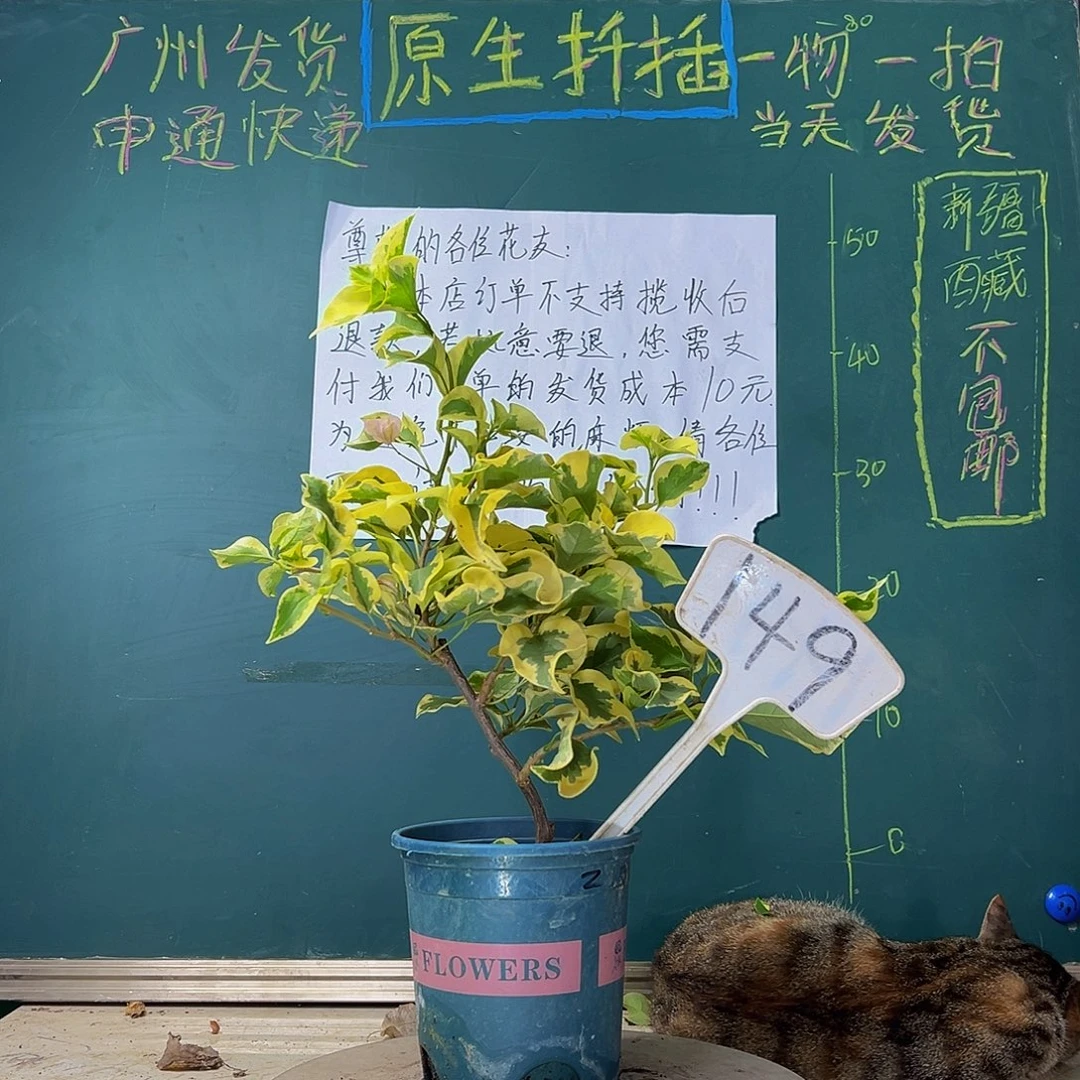 广州发货
原生扦插
一物一拍
80
申通快递
当天发货
新疆
西藏
不包邮
尊 的各位花友:
本店订单不支持揽收后
退款, 意要退,您需支
付我们 单的发货成本10元.
为 的麻烦 请各位
!!!
50
40
30
20
10
0
149
FLOWERS